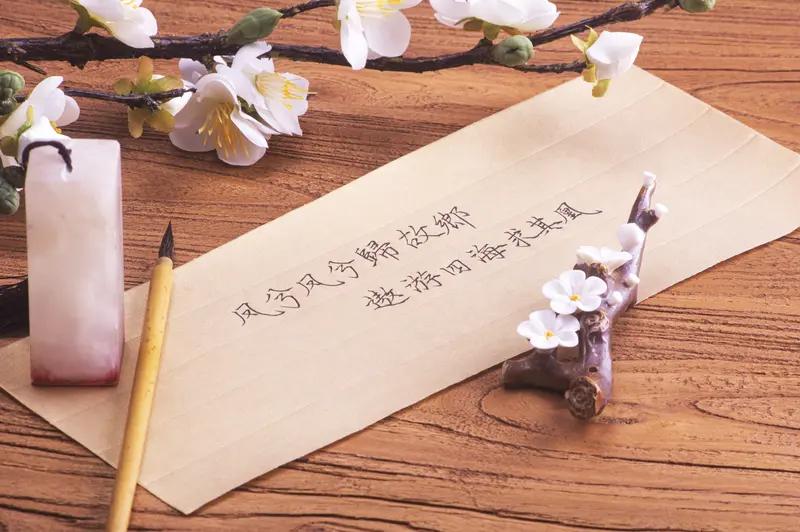 凤兮凤兮歸故鄉
遨游四海求其凰